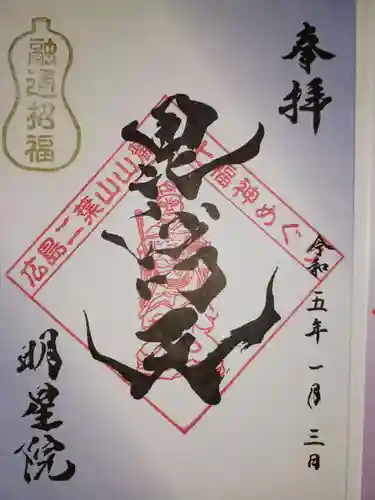 奉拝
令和五年一月三日
毘沙門天
広島二葉山山麓七福神めぐり
融通招福
明星院